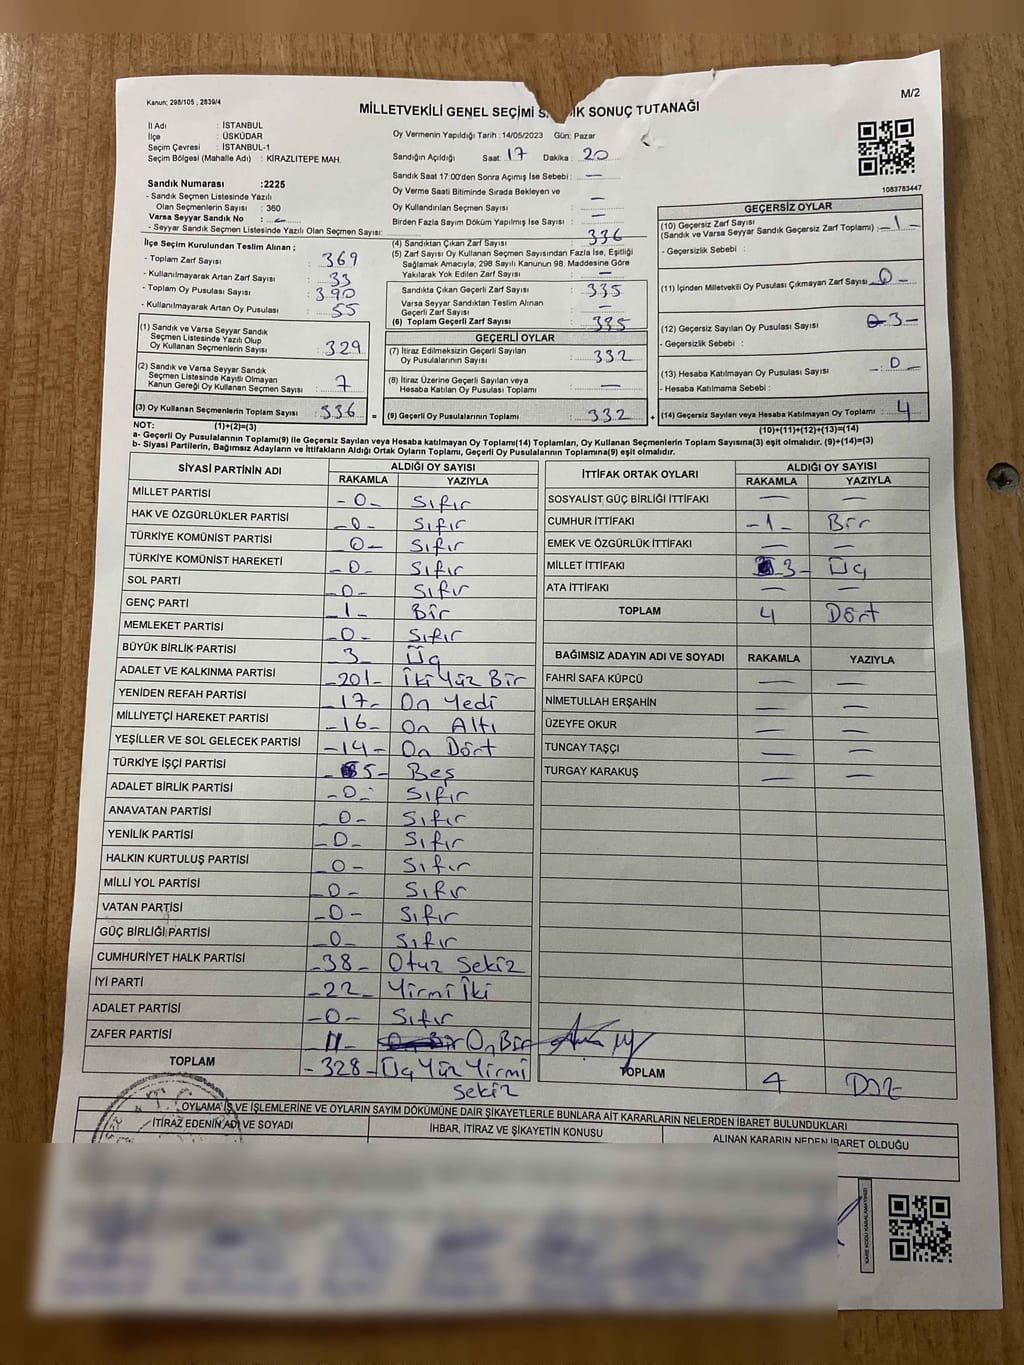 Kanun; 298/105 , 2839/4
M/2
MİLLETVEKİLİ GENEL SEÇİMİ IK SONUÇ TUTANAĞI
İl Adı : İSTANBUL
İlçe : ÜSKÜDAR
Seçim Çevresi : İSTANBUL-1
Seçim Bölgesi (Mahalle Adı) : KİRAZLITEPE MAH.
Oy Vermenin Yapıldığı Tarih :14/05/2023 Gün: Pazar
Sandığın Açıldığı Saat: 17 Dakika : 20
Sandık Saat 17:00'den Sonra Açımış İse Sebebi : —
Oy Verme Saati Bitiminde Sırada Bekleyen ve
Oy Kullandırılan Seçmen Sayısı : —
Birden Fazla Sayım Döküm Yapılmış İse Sayısı : —
1083783447
Sandık Numarası :2225
- Sandık Seçmen Listesinde Yazılı
Olan Seçmenlerin Sayısı : 360
Varsa Seyyar Sandık No :
- Seyyar Sandık Seçmen Listesinde Yazılı Olan Seçmen Sayısı:
İlçe Seçim Kurulundan Teslim Alınan ;
- Toplam Zarf Sayısı : 369
- Kullanılmayarak Artan Zarf Sayısı : 33
- Toplam Oy Pusulası Sayısı : 390
- Kullanılmayarak Artan Oy Pusulası : 55
(1) Sandık ve Varsa Seyyar Sandık
Seçmen Listesinde Yazılı Olup
Oy Kullanan Seçmenlerin Sayısı : 329
(2) Sandık ve Varsa Seyyar Sandık
Seçmen Listesinde Kayıtlı Olmayan
Kanun Gereği Oy Kullanan Seçmen Sayısı : 7
(3) Oy Kullanan Seçmenlerin Toplam Sayısı : 336 =
(4) Sandıktan Çıkan Zarf Sayısı : 336
(5) Zarf Sayısı Oy Kullanan Seçmen Sayısından Fazla İse, Eşitliği
Sağlamak Amacıyla; 298 Sayılı Kanunun 98. Maddesine Göre
Yakılarak Yok Edilen Zarf Sayısı : —
Sandıkta Çıkan Geçerli Zarf Sayısı : 335
Varsa Seyyar Sandıktan Teslim Alınan
Geçerli Zarf Sayısı : —
(6) Toplam Geçerli Zarf Sayısı : 335
GEÇERLİ OYLAR
(7) İtiraz Edilmeksizin Geçerli Sayılan
Oy Pusulalarının Sayısı : 332
(8) İtiraz Üzerine Geçerli Sayılan veya
Hesaba Katılan Oy Pusulası Toplamı : —
(9) Geçerli Oy Pusulalarının Toplamı : 332 +
GEÇERSİZ OYLAR
(10) Geçersiz Zarf Sayısı
(Sandık ve Varsa Seyyar Sandık Geçersiz Zarf Toplamı) : -1-
- Geçersizlik Sebebi :
(11) İçinden Milletvekili Oy Pusulası Çıkmayan Zarf Sayısı : 0-
(12) Geçersiz Sayılan Oy Pusulası Sayısı : 3-
- Geçersizlik Sebebi :
(13) Hesaba Katılmayan Oy Pusulası Sayısı : -0
- Hesaba Katılmama Sebebi :
(14) Geçersiz Sayılan veya Hesaba Katılmayan Oy Toplamı : 4
NOT: (1)+(2)=(3) (10)+(11)+(12)+(13)=(14)
a- Geçerli Oy Pusulalarının Toplamı(9) ile Geçersiz Sayılan veya Hesaba katılmayan Oy Toplamı(14) Toplamları, Oy Kullanan Seçmenlerin Toplam Sayısına(3) eşit olmalıdır. (9)+(14)=(3)
b- Siyasi Partilerin, Bağımsız Adayların ve İttifakların Aldığı Ortak Oyların Toplamı, Geçerli Oy Pusulalarının Toplamına(9) eşit olmalıdır.
SİYASİ PARTİNİN ADI ALDIĞI OY SAYISI
RAKAMLA YAZIYLA
MİLLET PARTİSİ -0- Sıfır
HAK VE ÖZGÜRLÜKLER PARTİSİ -0- Sıfır
TÜRKİYE KOMÜNİST PARTİSİ -0- Sıfır
TÜRKİYE KOMÜNİST HAREKETİ -0- Sıfır
SOL PARTİ -0- Sıfır
GENÇ PARTİ -1- Bir
MEMLEKET PARTİSİ -0- Sıfır
BÜYÜK BİRLİK PARTİSİ -3- Üç
ADALET VE KALKINMA PARTİSİ -201- İki Yüz Bir
YENİDEN REFAH PARTİSİ -17- On Yedi
MİLLİYETÇİ HAREKET PARTİSİ -16- On Altı
YEŞİLLER VE SOL GELECEK PARTİSİ -14- On Dört
TÜRKİYE İŞÇİ PARTİSİ -5- Beş
ADALET BİRLİK PARTİSİ -0- Sıfır
ANAVATAN PARTİSİ -0- Sıfır
YENİLİK PARTİSİ -0- Sıfır
HALKIN KURTULUŞ PARTİSİ -0- Sıfır
MİLLİ YOL PARTİSİ -0- Sıfır
VATAN PARTİSİ -0- Sıfır
GÜÇ BİRLİĞİ PARTİSİ -0- Sıfır
CUMHURİYET HALK PARTİSİ -38- Otuz Sekiz
İYİ PARTİ -22- Yirmi İki
ADALET PARTİSİ -0- Sıfır
ZAFER PARTİSİ -11- On Bir
TOPLAM -328- Üç Yüz Yirmi
Sekiz
İTTİFAK ORTAK OYLARI ALDIĞI OY SAYISI
RAKAMLA YAZIYLA
SOSYALİST GÜÇ BİRLİĞİ İTTİFAKI — —
CUMHUR İTTİFAKI -1- Bir
EMEK VE ÖZGÜRLÜK İTTİFAKI — —
MİLLET İTTİFAKI 3- Üç
ATA İTTİFAKI — —
TOPLAM 4 Dört
BAĞIMSIZ ADAYIN ADI VE SOYADI RAKAMLA YAZIYLA
FAHRİ SAFA KÜPCÜ — —
NİMETULLAH ERŞAHİN — —
ÜZEYFE OKUR — —
TUNCAY TAŞÇI — —
TURGAY KARAKUŞ — —
TOPLAM 4
OYLAMA İŞ VE İŞLEMLERİNE VE OYLARIN SAYIM DÖKÜMÜNE DAİR ŞİKAYETLERLE BUNLARA AİT KARARLARIN NELERDEN İBARET BULUNDUKLARI
İTİRAZ EDENİN ADI VE SOYADI İHBAR, İTİRAZ VE ŞİKAYETİN KONUSU ALINAN KARARIN NEDEN İBARET OLDUĞU